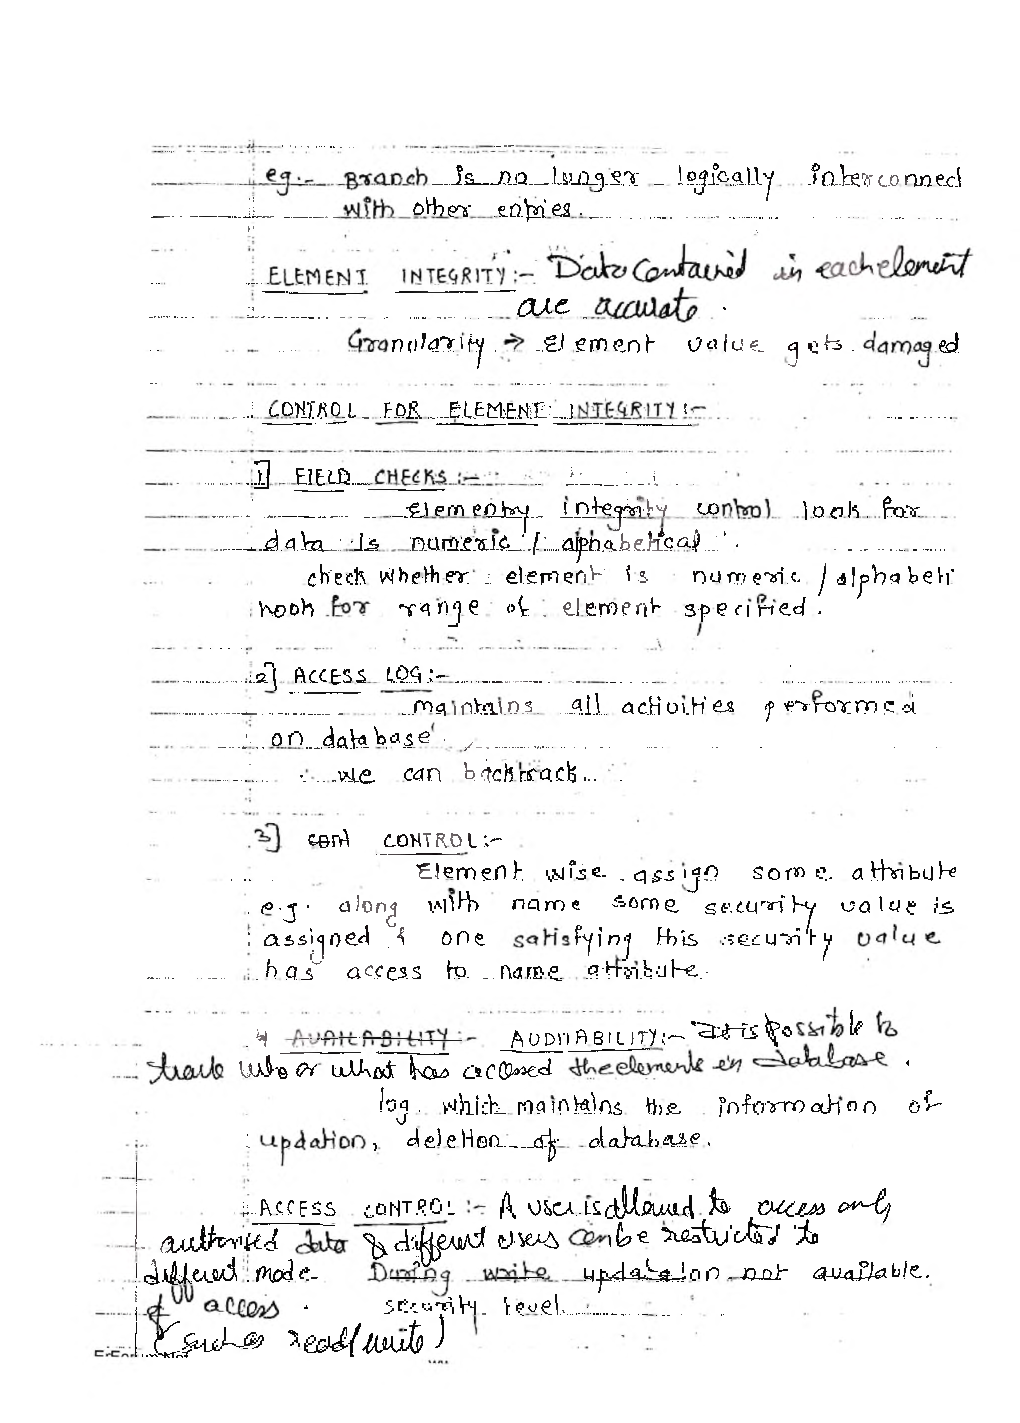 eg.- Branch is no longer logically interconned
with other entries.
ELEMENT INTEGRITY:- Data Contained in each element
are accurate.
Granularity → Element value gets damaged
CONTROL FOR ELEMENT INTEGRITY:-
1] FIELD CHECKS:-
elementry integrity control look for
data is numeric / alphabetical.
check whether element is numeric / alphabeti
hook for range of element specified.
2] ACCESS LOG:-
maintains all activities performed
on database
we can backtrack..
3] cont CONTROL:-
Element wise assign some attribute
e.g. along with name some security value is
assigned & one satisfying this security value
has access to name attribute.
4 AVAILABILITY:- AUDITABILITY:- It is possible to
track who or what has accessed the elements in database.
log which maintains the information of
updation, deletion of database.
ACCESS CONTROL:- A user is allowed to access only
authorised data & different users can be restricted to
different mode During write updataion not available.
of access. security level.
(such as read/write)